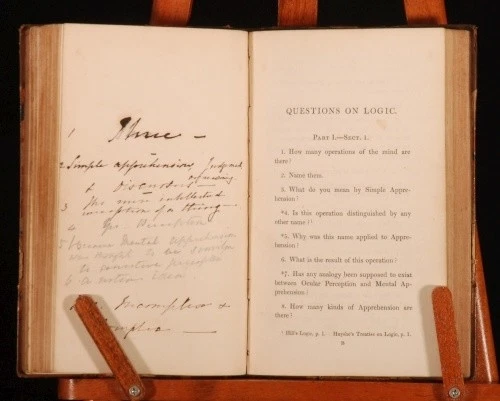 1 Three —
2 Simple apprehension, Judgment
& Discourse —
3 The mere intellectual
conception of a thing —
4 Yes. Perception
5 Because Mental apprehension
was thought to be similar
to sensitive perception
6 A notion Idea
Incomplex &
Complex —
QUESTIONS ON LOGIC.
PART I.—SECT. 1.
1. How many operations of the mind are
there?
2. Name them.
3. What do you mean by Simple Appre-
hension?
*4. Is this operation distinguished by any
other name?¹
*5. Why was this name applied to Appre-
hension?
6. What is the result of this operation?
*7. Has any analogy been supposed to exist
between Ocular Perception and Mental Ap-
prehension?
8. How many kinds of Apprehension are
there?
¹ Hill's Logic, p. 1. Huyshe's Treatise on Logic, p. 3.
B